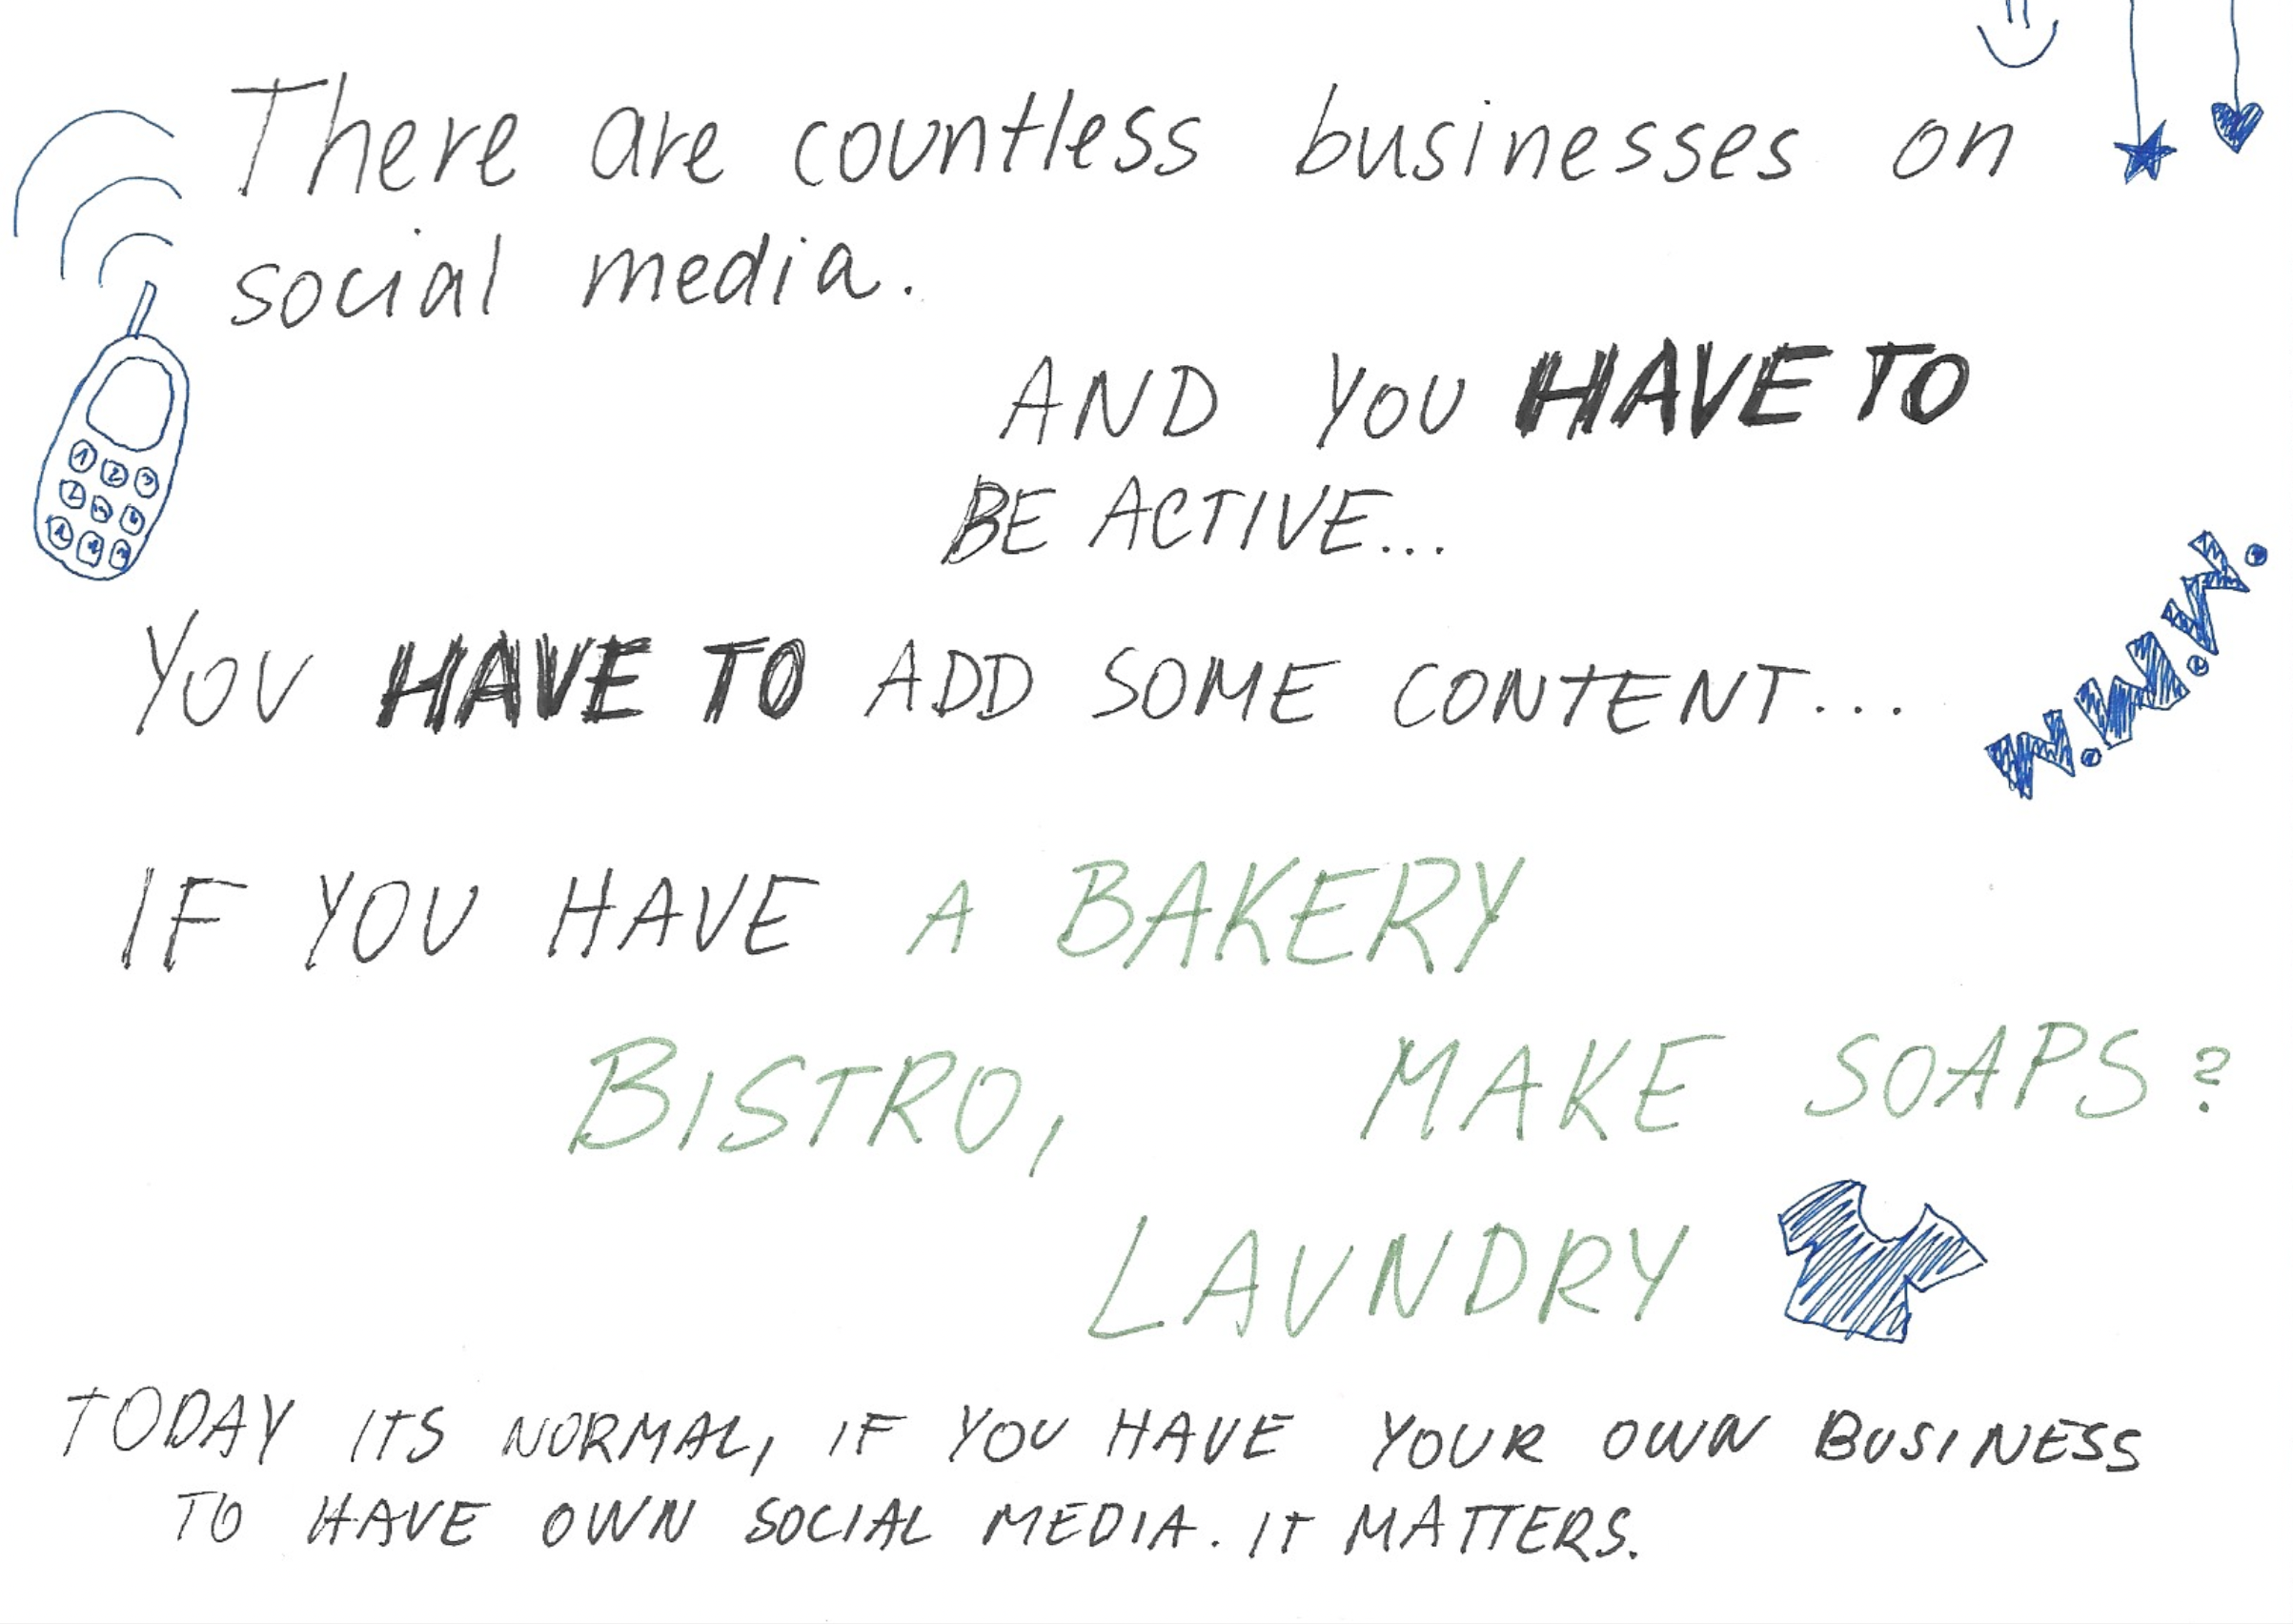 There are countless businesses on
social media.
AND YOU HAVE TO
BE ACTIVE...
YOU HAVE TO ADD SOME CONTENT...
W.W.W.
IF YOU HAVE A BAKERY
BISTRO, MAKE SOAPS?
LAUNDRY
TODAY ITS NORMAL, IF YOU HAVE YOUR OWN BUSINESS
TO HAVE OWN SOCIAL MEDIA. IT MATTERS.